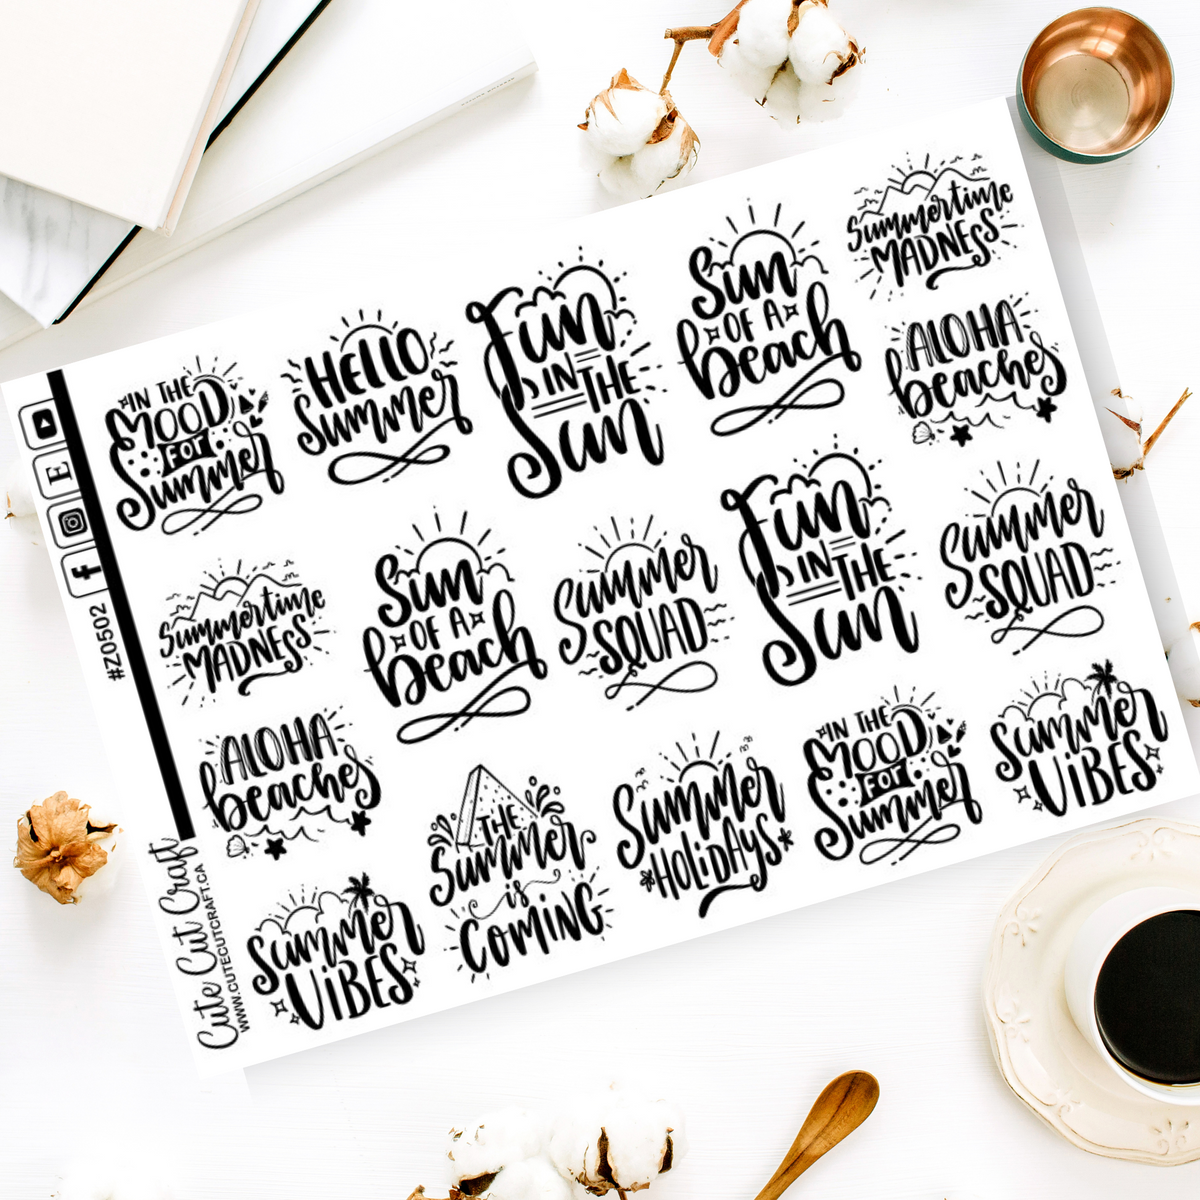 IN THE
MOOD
FOR
Summer
HELLO
Summer
Fun
IN THE
Sun
Sun
OF A
beach
Summertime
MADNESS
ALOHA
beaches
Summertime
MADNESS
Sun
OF A
beach
Summer
SQUAD
Fun
IN THE
Sun
Summer
SQUAD
ALOHA
beaches
Summer
ViBES
THE
Summer
is
COMiNG
Summer
HOLiDAYS
IN THE
MOOD
FOR
Summer
Summer
ViBES
E
f
#Z0502
Cute Cut Craft
WWW.CUTECUTCRAFT.CA